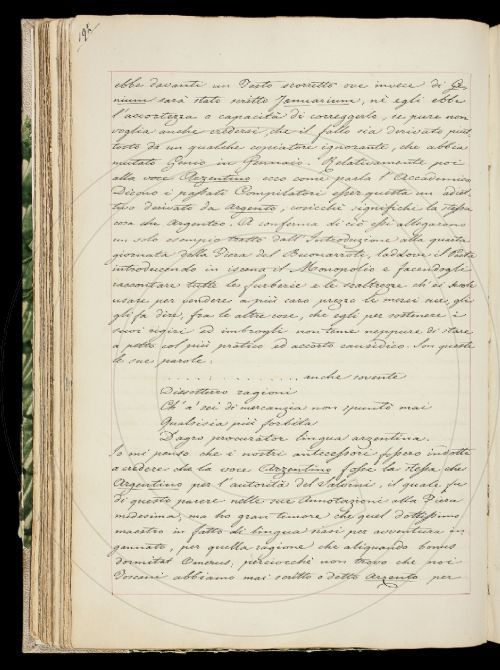 194
ebbe davanti un Testo scorretto ove invece di Ge-
nium sarà stato scritto Januarium, nè egli ebbe
l'accortezza o capacità di correggerlo, se pure non
voglia anche credersi, che il fallo sia derivato piut-
tosto da un qualche copiatore ignorante, che abbia
mutato Genio in Gennaio. Relativamente poi
alla voce Arzentino ecco come parla l'Accademico
Dicono i passati Compilatori esser questa un adiet-
tivo derivato da argento, cosicchè significhi la stessa
cosa che Argenteo. A conferma di ciò essi allegarono
un solo esempio tratto dall'Introduzione alla quarta
giornata della Fiera del Buonarroti, laddove il Poeta
introducendo in iscena il Monopolio e facendogli
raccontare tutte le furberie e le scaltrezze ch'ei suole
usare per vendere a più caro prezzo le merci sue, gli
fa dire, fra le altre cose, che egli per sostenere i
suoi rigiri ed imbrogli non teme neppure di stare
a petto col più pratico ed accorto causidico. Son queste
le sue parole:
. . . . . . . . . . . . . . . . anche sovente
Dissotterro ragioni
Ch'a' sei di mercanzia non spuntò mai
Qualsisia più forbita
D'agro procurator lingua arzentina.
Io mi penso che i nostri antecessori fossero indotti
a credere che la voce Arzentino fosse la stessa che
Argentino per l'autorità del Salvini, il quale fu
di questo parere nelle sue Annotazioni alla Fiera
medesima, ma ho gran timore che quel dottissimo
maestro in fatto di lingua siasi per avventura in-
gannato, per quella ragione che aliquando bonus
dormitat Omerus; perciocchè non trovo che noi
Toscani abbiamo mai scritto o detto Arzento per